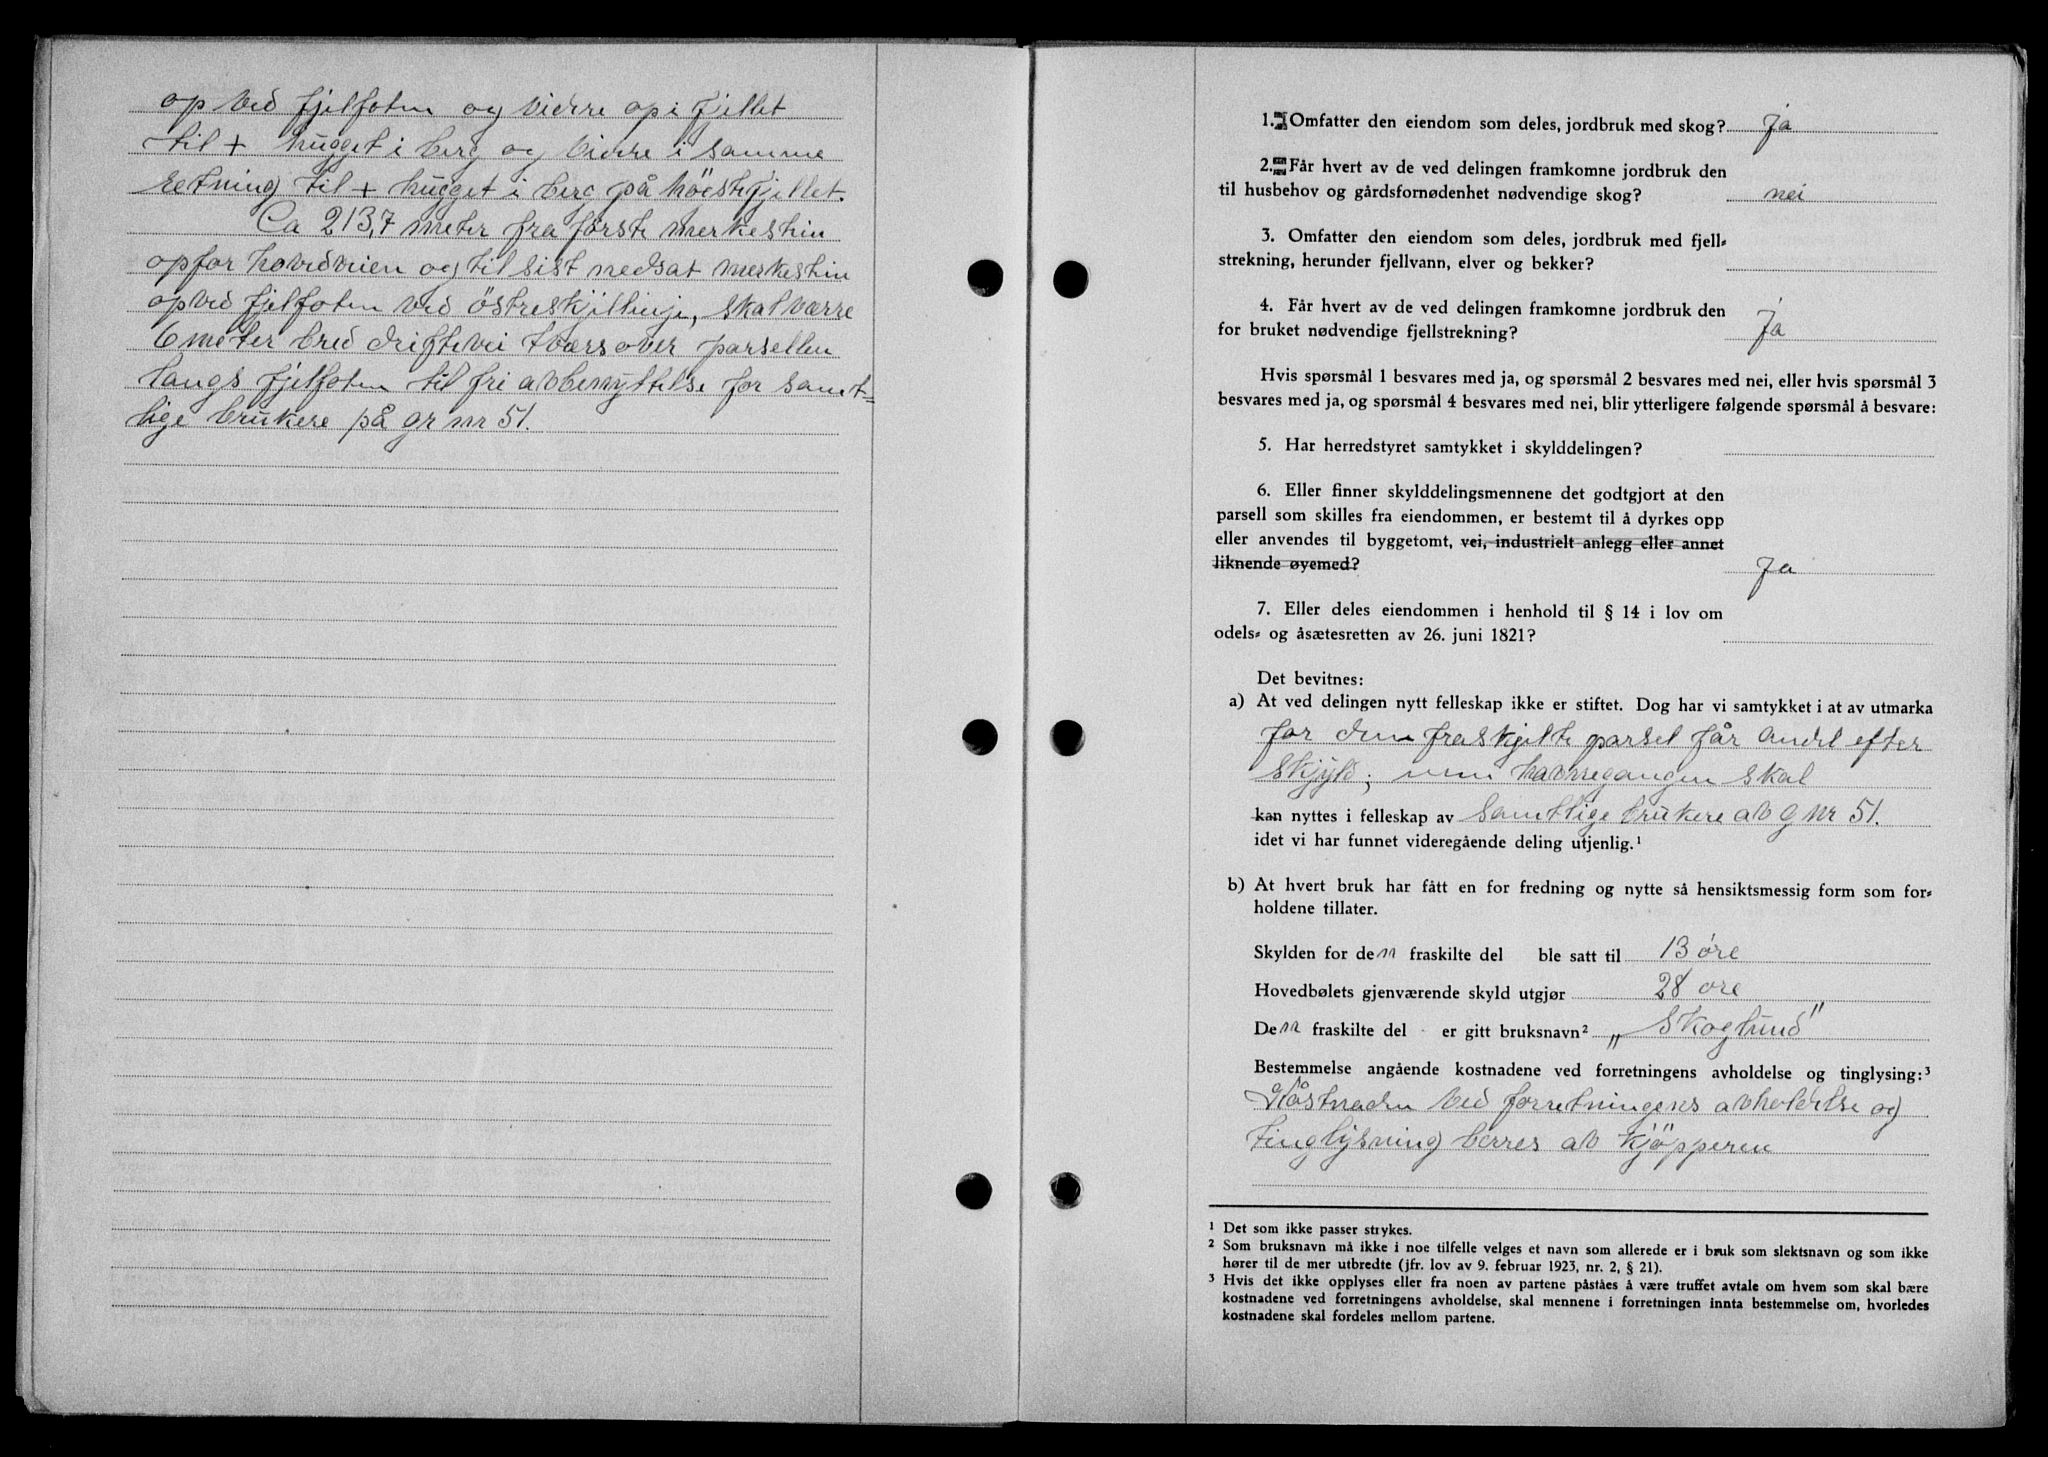 op ved fjelfoten og vidre op i fjellet
til + hugget i berg og vidre i samme
retning til + hugget i berg på höiste fjellet.
Ca 213,7 meter fra første merkestein
opfor hovedveien og til sist nedsat merkestein
op ved fjelfoten ved östreskjellinje, skal værre
6 meter bred driftevei tværs over parsellen
langs fjelfoten til fri avbenyttelse for samt=
lige brukere på gr nr 51.
1. Omfatter den eiendom som deles, jordbruk med skog? Ja
2. Får hvert av de ved delingen framkomne jordbruk den
til husbehov og gårdsfornødenhet nødvendige skog? nei
3. Omfatter den eiendom som deles, jordbruk med fjell-
strekning, herunder fjellvann, elver og bekker?
4. Får hvert av de ved delingen framkomne jordbruk den
for bruket nødvendige fjellstrekning? Ja
Hvis spørsmål 1 besvares med ja, og spørsmål 2 besvares med nei, eller hvis spørsmål 3
besvares med ja, og spørsmål 4 besvares med nei, blir ytterligere følgende spørsmål å besvare:
5. Har herredstyret samtykket i skylddelingen?
6. Eller finner skylddelingsmennene det godtgjort at den
parsell som skilles fra eiendommen, er bestemt til å dyrkes opp
eller anvendes til byggetomt, vei, industrielt anlegg eller annet
liknende øyemed? Ja
7. Eller deles eiendommen i henhold til § 14 i lov om
odels- og åsætesretten av 26. juni 1821?
Det bevitnes:
a) At ved delingen nytt felleskap ikke er stiftet. Dog har vi samtykket i at av utmarka
for den fraskjilte parsel får andel efter
skjyld; men havnegangen skal
kan nyttes i felleskap av samtlige brukere av g nr 51.
idet vi har funnet videregående deling utjenlig.¹
b) At hvert bruk har fått en for fredning og nytte så hensiktsmessig form som for-
holdene tillater.
Skylden for den fraskilte del ble satt til 13 øre
Hovedbølets gjenværende skyld utgjør 28 øre
Den fraskilte del er gitt bruksnavn² „Skoglund"
Bestemmelse angående kostnadene ved forretningens avholdelse og tinglysing:³
Kåstnaden ved forretningens avholdelse og
tinglysning berres av kjöpperen
¹ Det som ikke passer strykes.
² Som bruksnavn må ikke i noe tilfelle velges et navn som allerede er i bruk som slektsnavn og som ikke
hører til de mer utbredte (jfr. lov av 9. februar 1923, nr. 2, § 21).
³ Hvis det ikke opplyses eller fra noen av partene påståes å være truffet avtale om hvem som skal bære
kostnadene ved forretningens avholdelse, skal mennene i forretningen innta bestemmelse om, hvorledes
kostnadene skal fordeles mellom partene.